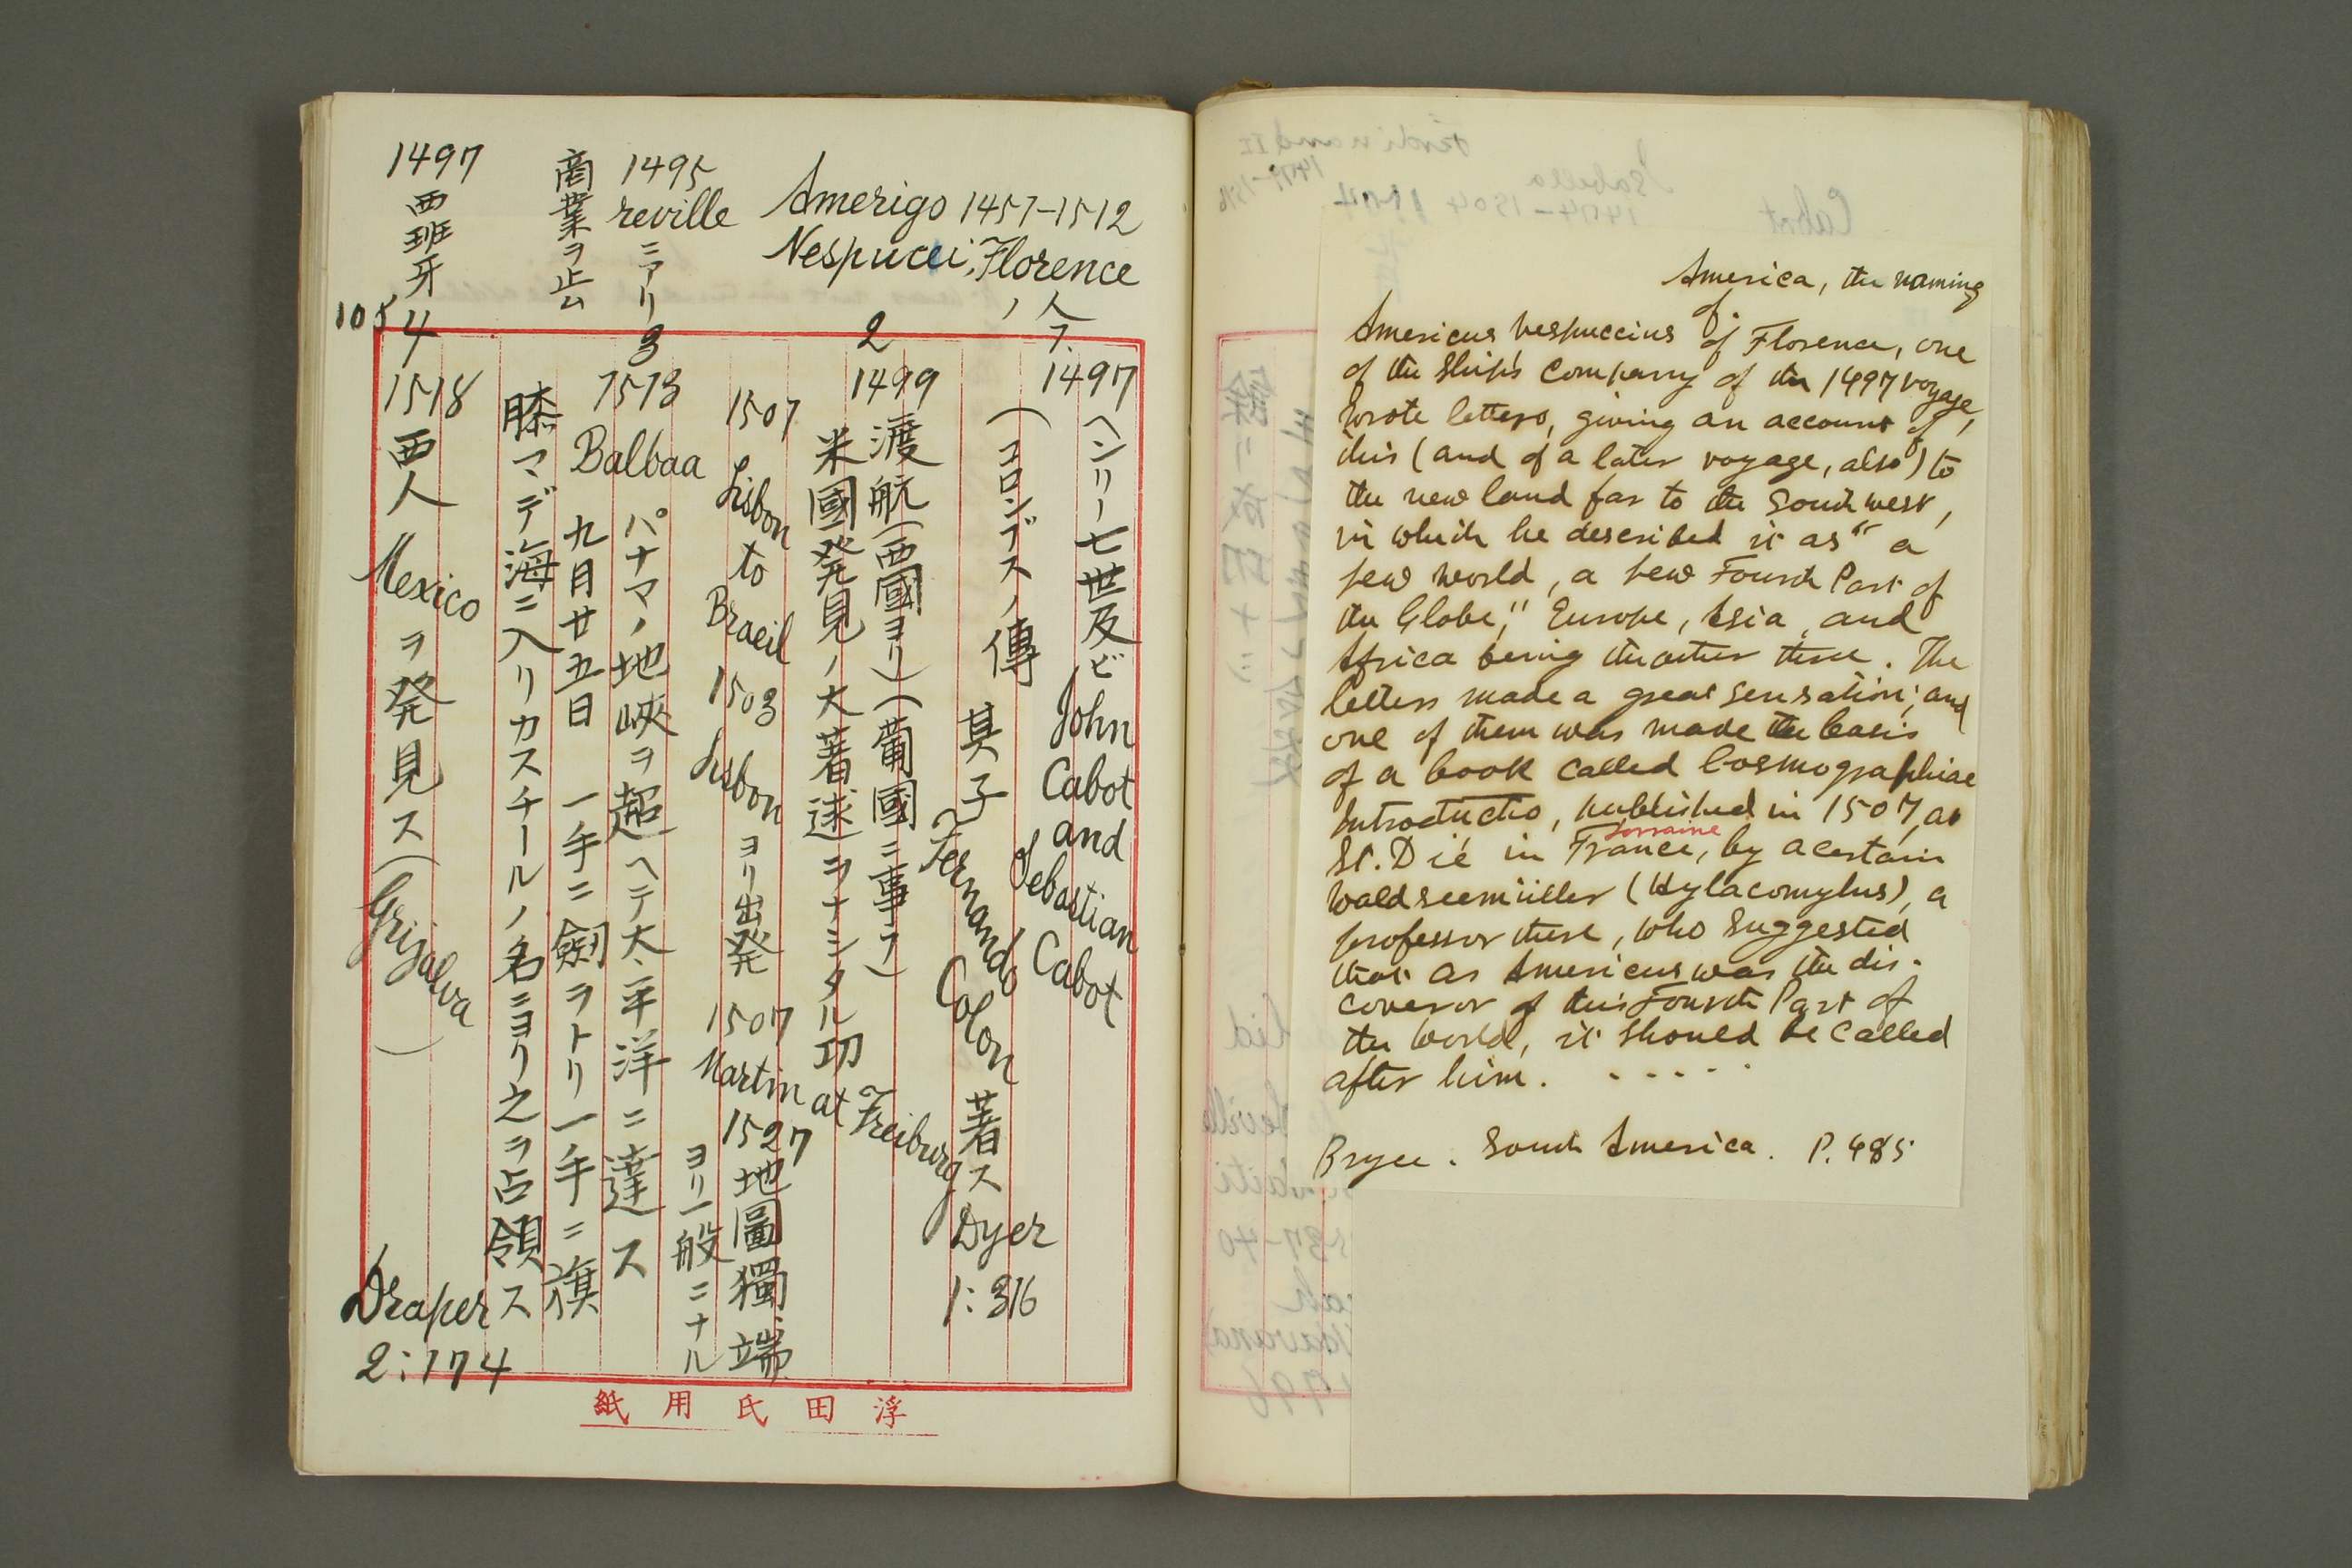 Amerigo 1457-1512
Nespucci, Florence
ノ人
1495
reville ニアリ
商業ヲ止ム
1497
西班牙
105
1.
1497 ヘンリー七世及ビ John Cabot and Sebastian Cabot
(コロンブスノ傳 其子 Fernando Colon 著ス Dyer 1:316
2
1499 渡航(西國ヨリ)(葡國ニ事フ)
米國発見ノ大著述ヲナシタル功
1507 Lisbon to Braeil 1503 Lisbon ヨリ出発 1507 Martin at Freiburg
1527 地圖獨端
ヨリ一般ニナル
3
1513 Balbaa パナマノ地峡ヲ超ヘテ太平洋ニ達ス
九月廿五日 一手ニ劔ヲトリ一手ニ旗
膝マデ海ニ入リカスチールノ名ニヨリ之ヲ占領ス
4
1518 西人 Mexico ヲ発見ス(Grijalva)
Draper
2:174
浮田氏用紙
America, the naming
of.
Americus Vespuccius of Florence, one
of the ship's company of the 1497 voyage,
wrote letters, giving an account of
this (and of a later voyage, also) to
the new land far to the Southwest,
in which he described it as "a
new world, a new Fourth Part of
the Globe," Europe, Asia, and
Africa being the other three. The
letters made a great sensation; and
one of them was made the basis
of a book called Cosmographiae
Introductio, published in 1507, at
Lorraine
St. Dié in France, by a certain
Waldseemüller (Hylacomylus), a
professor there, who suggested
that as Americus was the dis-
coveror of this Fourth Part of
the World, it should be called
after him. . . . . .
Bryce. South America. P. 485